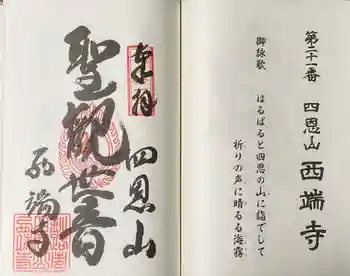 第二十一番 四恩山 西端寺
御詠歌
はるばると四恩の山に詣でして
祈りの声に晴るる海霧
奉拝
四恩山
聖観世音
西端寺